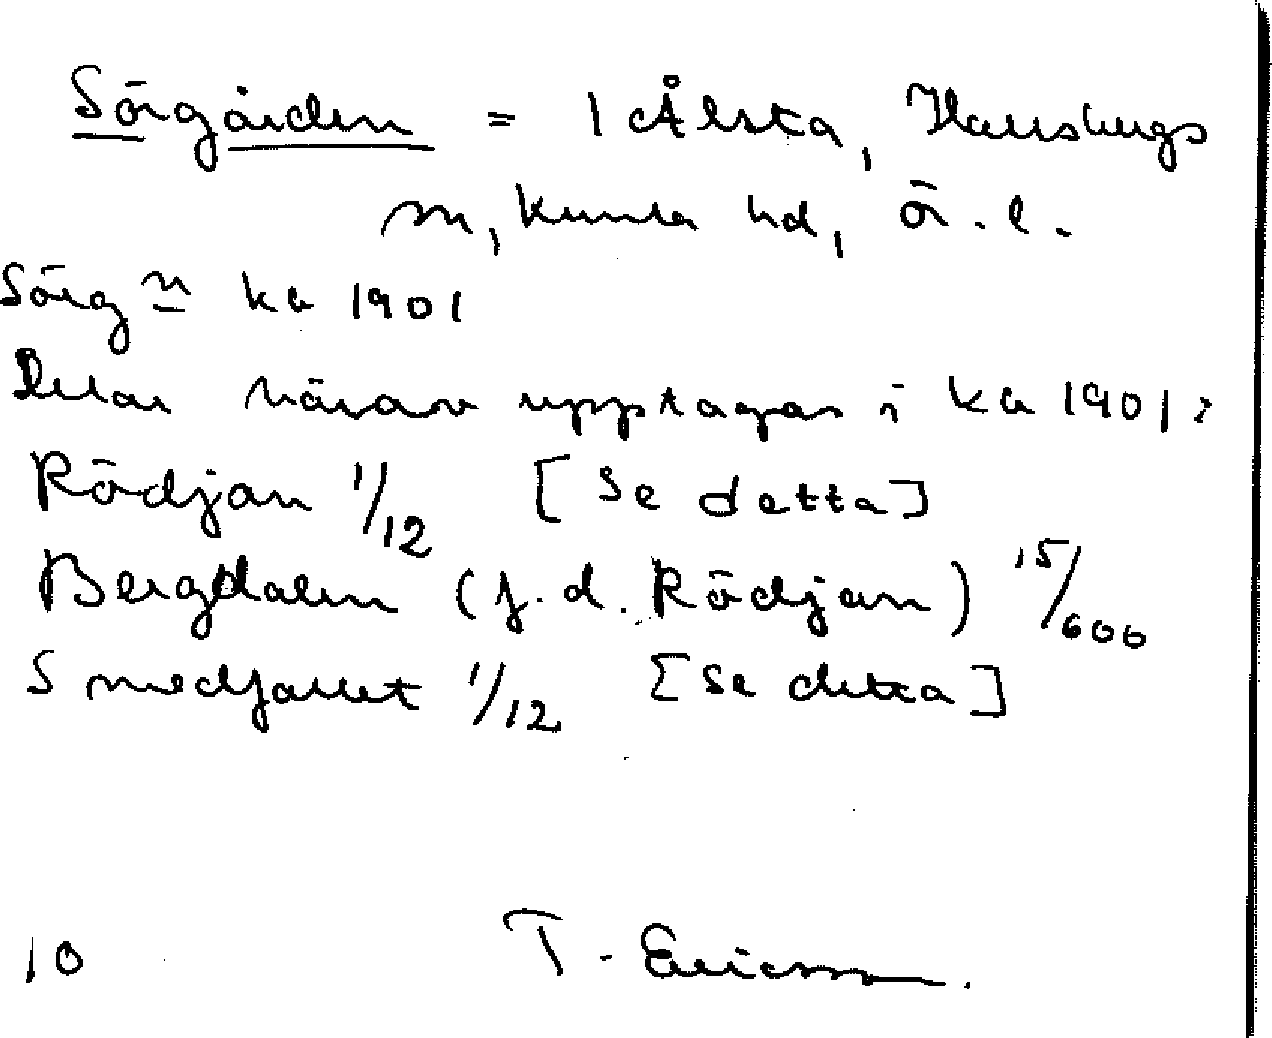 Sörgården = 1 Ålsta, Hallsbergs
sn, Kumla hd, Ör. l.
Sörg<sup>n</sup> ka 1901
Delar härav upptagas i ka 1901:
Rödjan 1/12 [Se detta]
Bergdalen (f.d. Rödjan) 15/600
Smedjallet 1/12 [Se detta]
10 T. Ericsson.